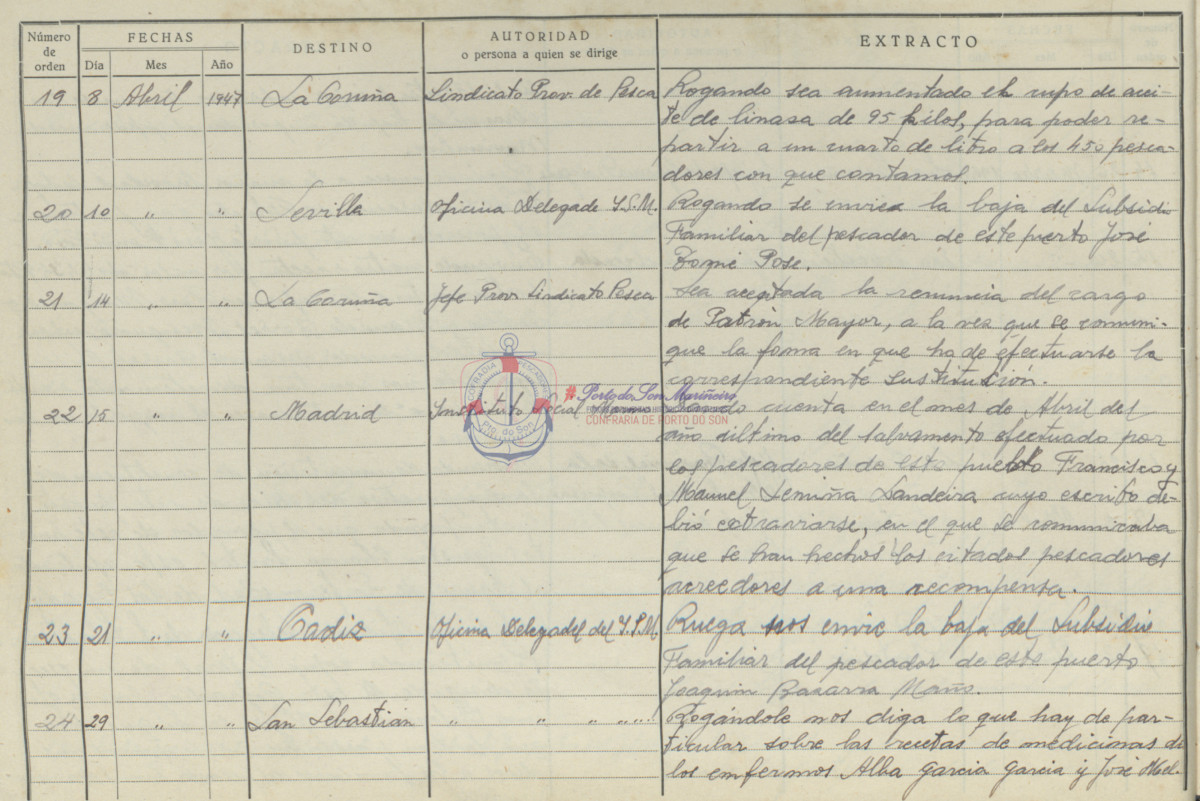 Número de orden
FECHAS
DESTINO
AUTORIDAD
o persona a quien se dirige
EXTRACTO
Día Mes Año
19 8 Abril 1947 La Coruña Sindicato Prov. de Pesca Rogando sea aumentado el cupo de acei-
te de linasa de 95 kilos, para poder re-
partir a un cuarto de litro a los 450 pesca-
dores con que contamos.
20 10 " " Sevilla Oficina Delegade I.S.M. Rogando se envie la baja del Subsidio
Familiar del pescador de este puerto José
Tomé Pose.
21 14 " " La Coruña Jefe Prov. Sindicato Pesca Sea aceptada la renuncia del cargo
de Patrón Mayor, a la vez que se comuni-
que la forma en que ha de efectuarse la
correspondiente sustitución.
22 15 " " Madrid Instituto Social Marina dando cuenta en el mes de Abril del
año último del salvamento efectuado por
los pescadores de este pueblo Francisco y
Manuel Lemiña Landeira cuyo escrito de-
bió extraviarse, en el que se comunicaba
que se han hechos los citados pescadores
acreedores a una recompensa.
23 21 " " Cadiz Oficina Delegadel del I.S.M. Ruega nos envie la baja del Subsidio
Familiar del pescador de este puerto
Joaquin
24 29 " " San Sebastián " " " " Rogándole nos diga lo que hay de par-
ticular sobre las recetas de medicinas de
los enfermos Alba Garcia Garcia y José Mel-
COFRADIA PESCADORES
Pto. do Son
Porto do Son Mariñeiro
CONFRARIA DE PORTO DO SON